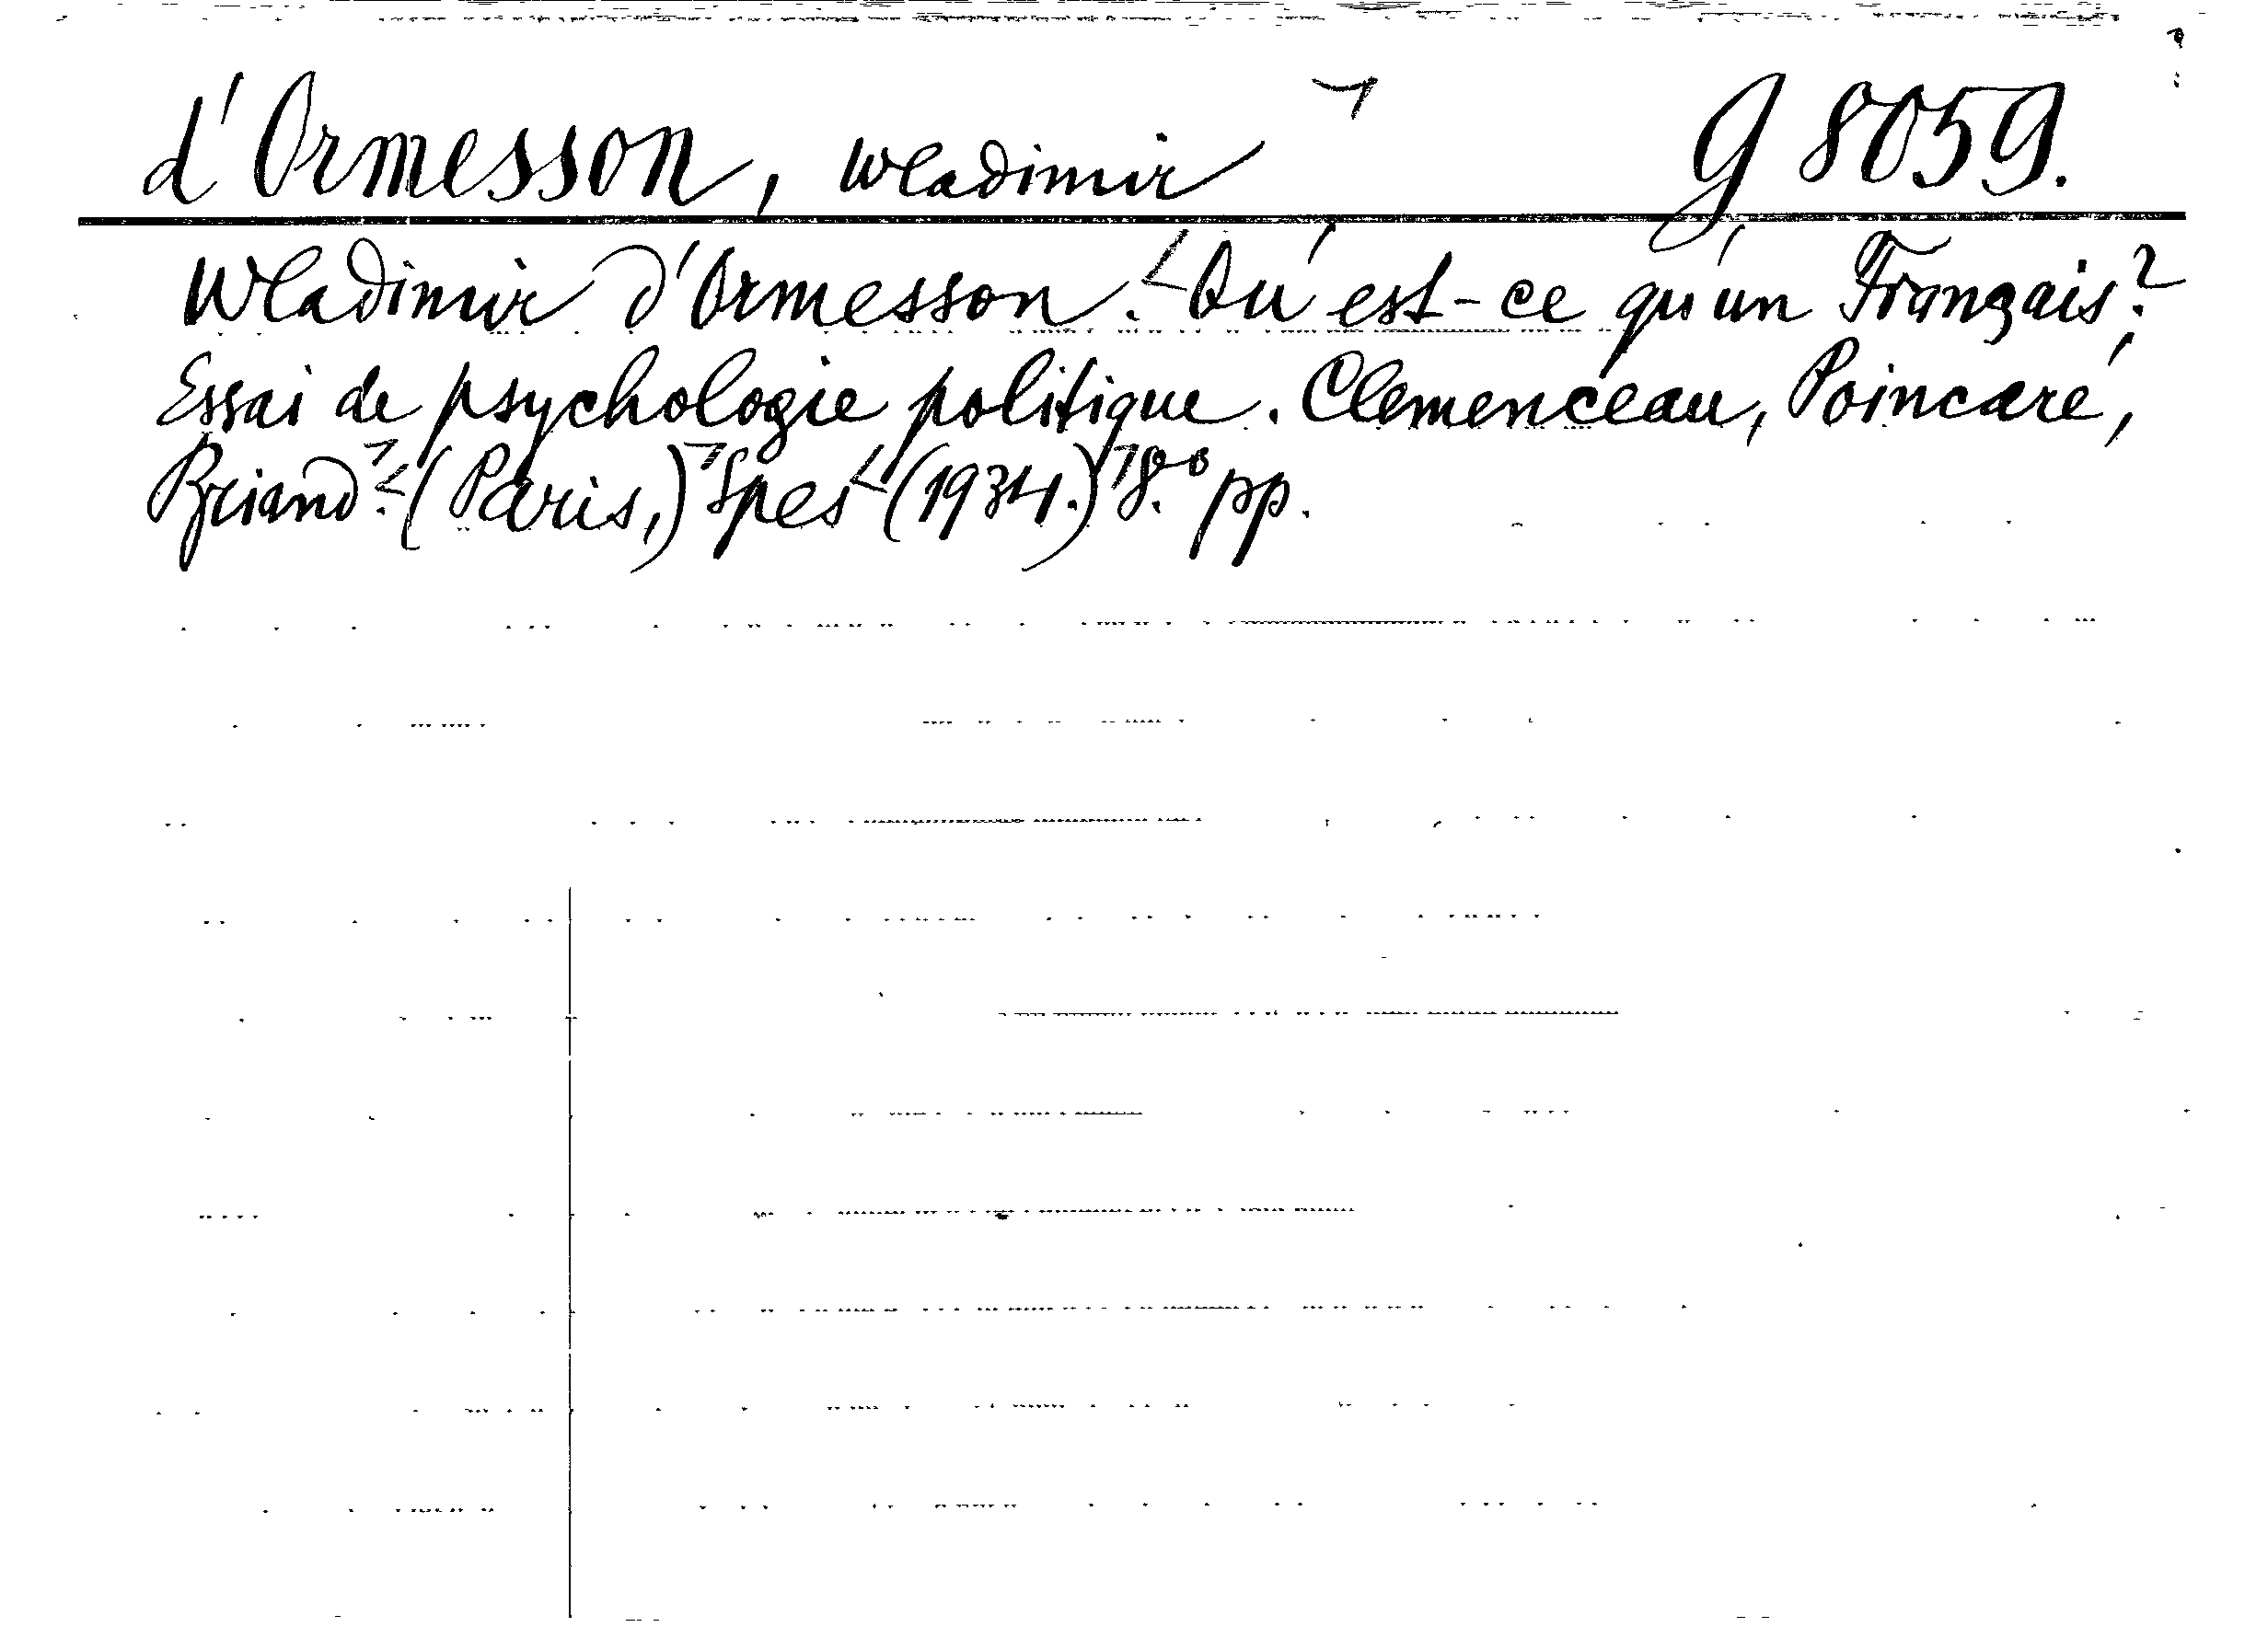 d'Ormesson, Wladimir G 8059.
Wladimir d'Ormesson. Qu'est-ce qu'un Français?
Essai de psychologie politique. Clemenceau, Poincaré,
Briand. (Paris,) Spes (1934.) 8.° pp.